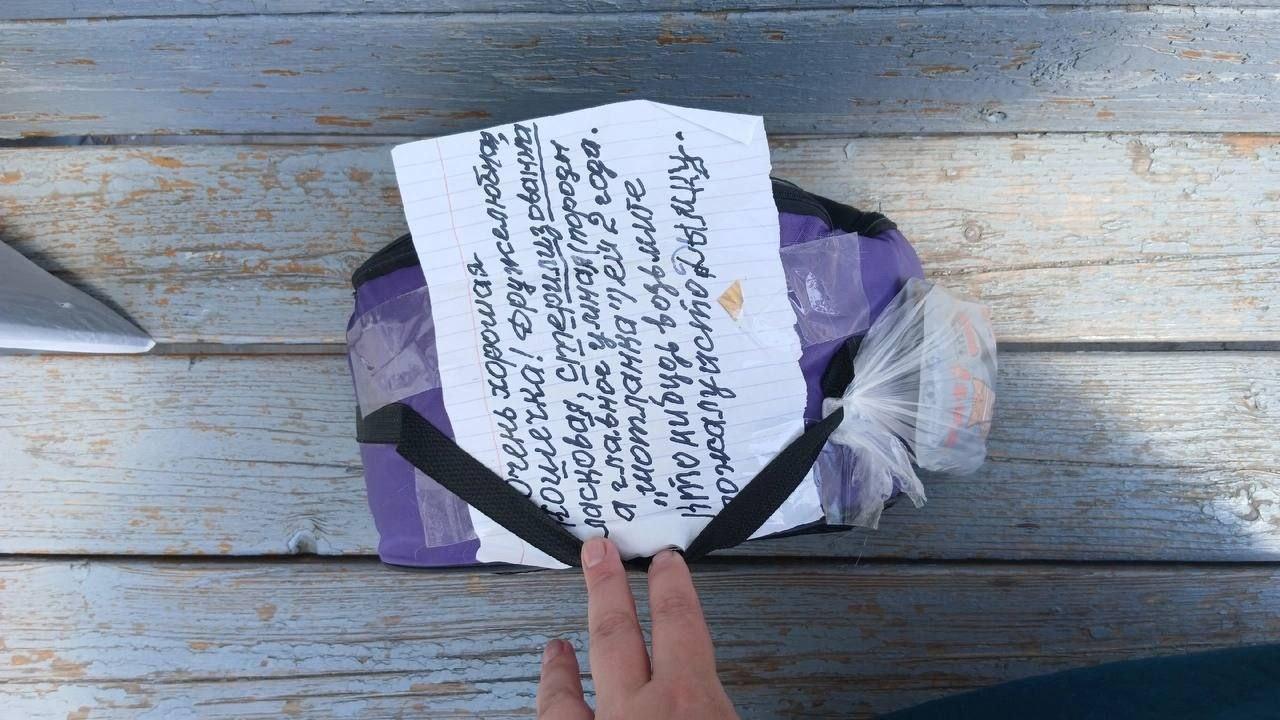 очень хорошая
кошечка! Дружелюбная,
ласковая, стерилизованная
а главное умная! породы
"шотланка", ей 2 года.
Кто нибудь возьмите
пожалуйсто Дымку..